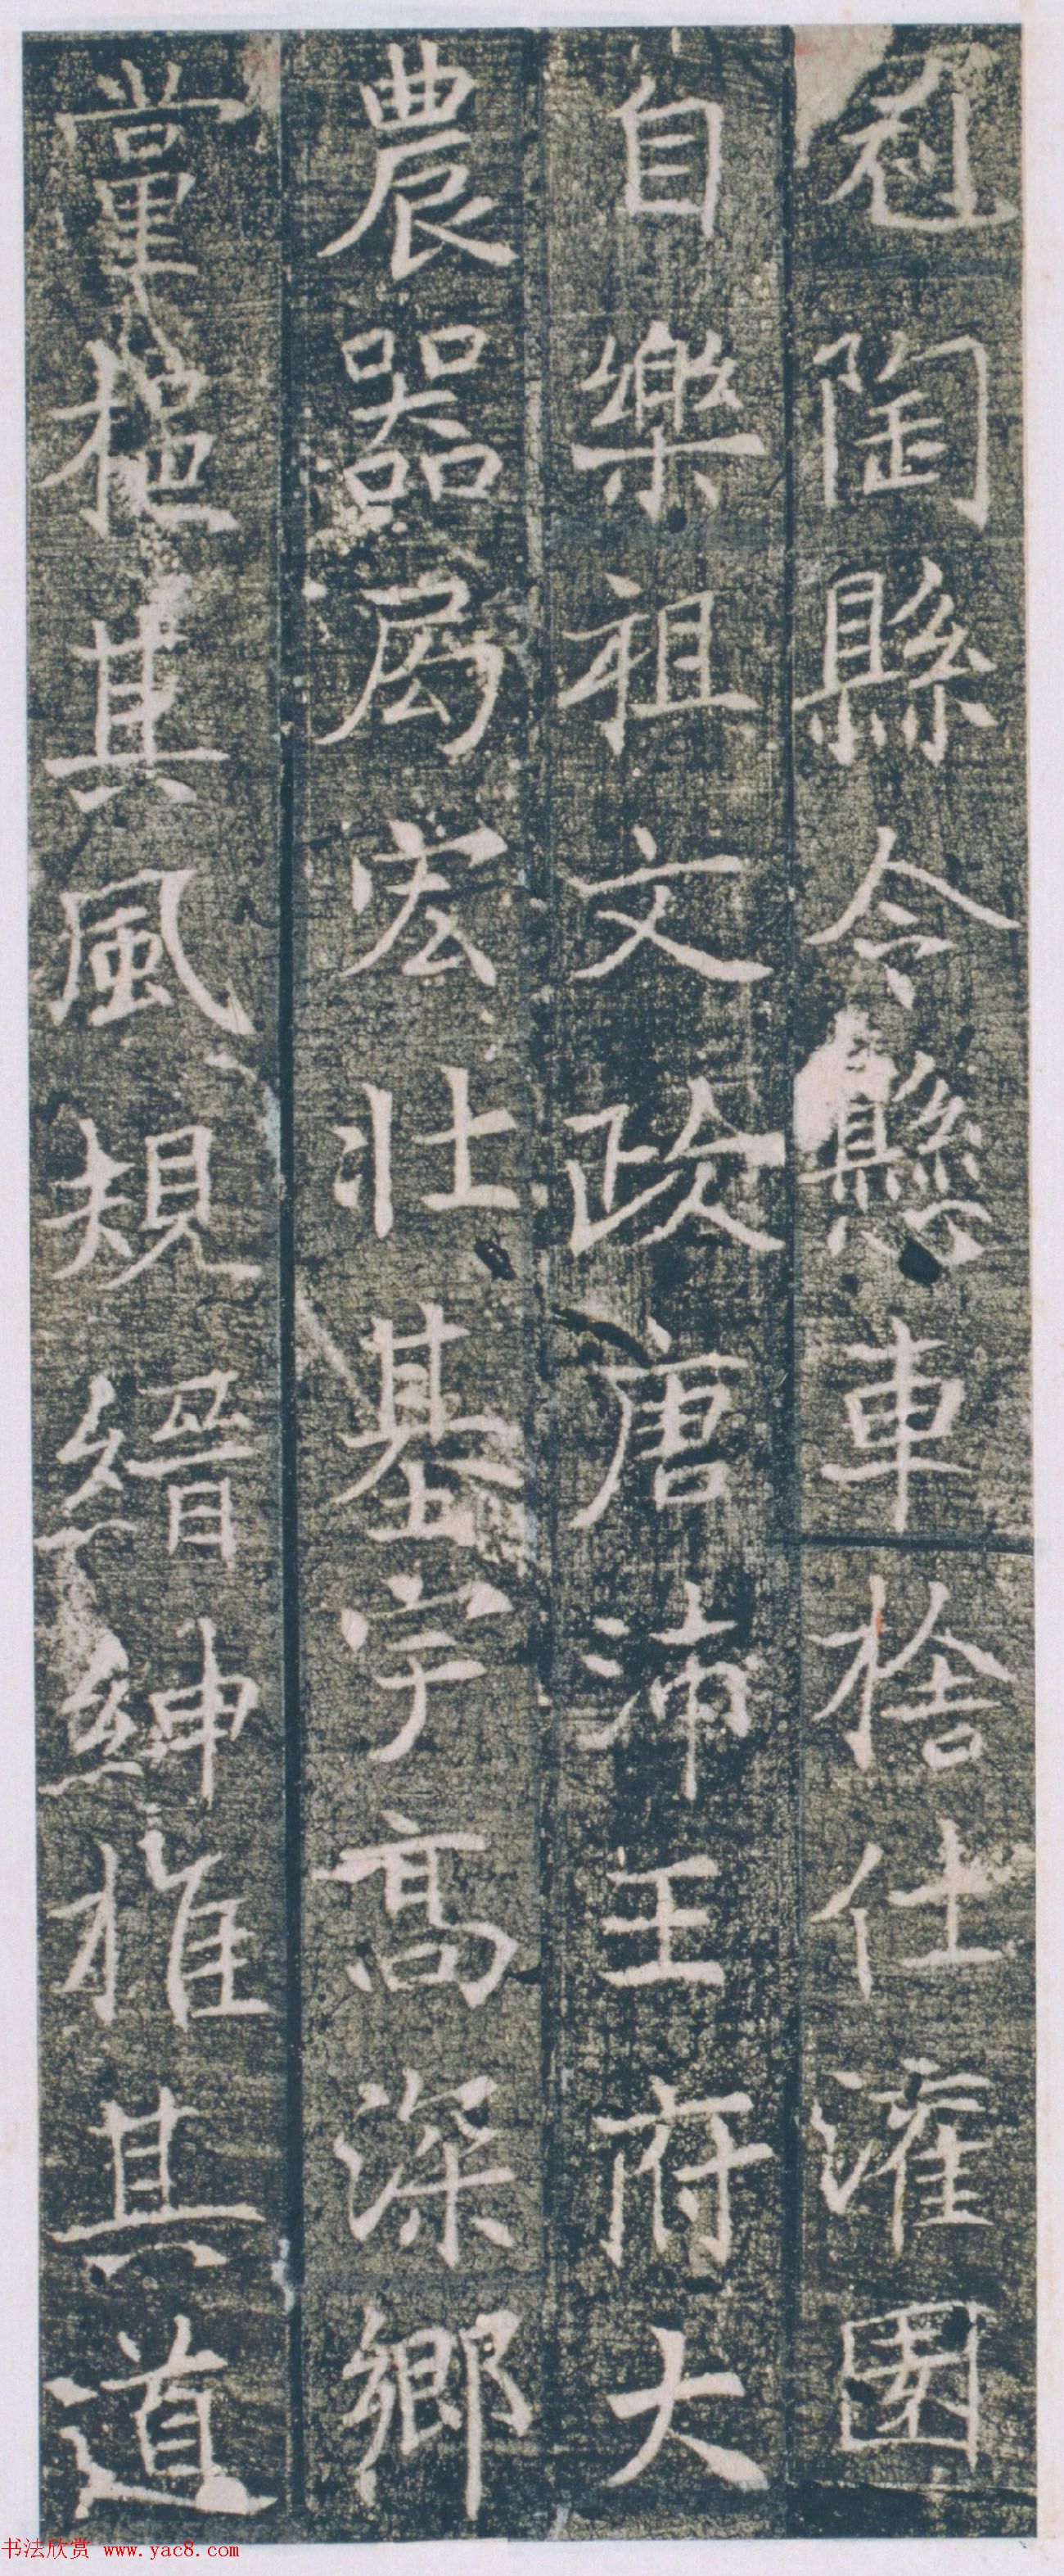 冠陶縣令懸車捨仕灌園
自樂祖文政唐沛王府大
農器局宏壯基宇高深鄉
黨挹其風規縉紳推其道
书法欣赏 www.yac8.com